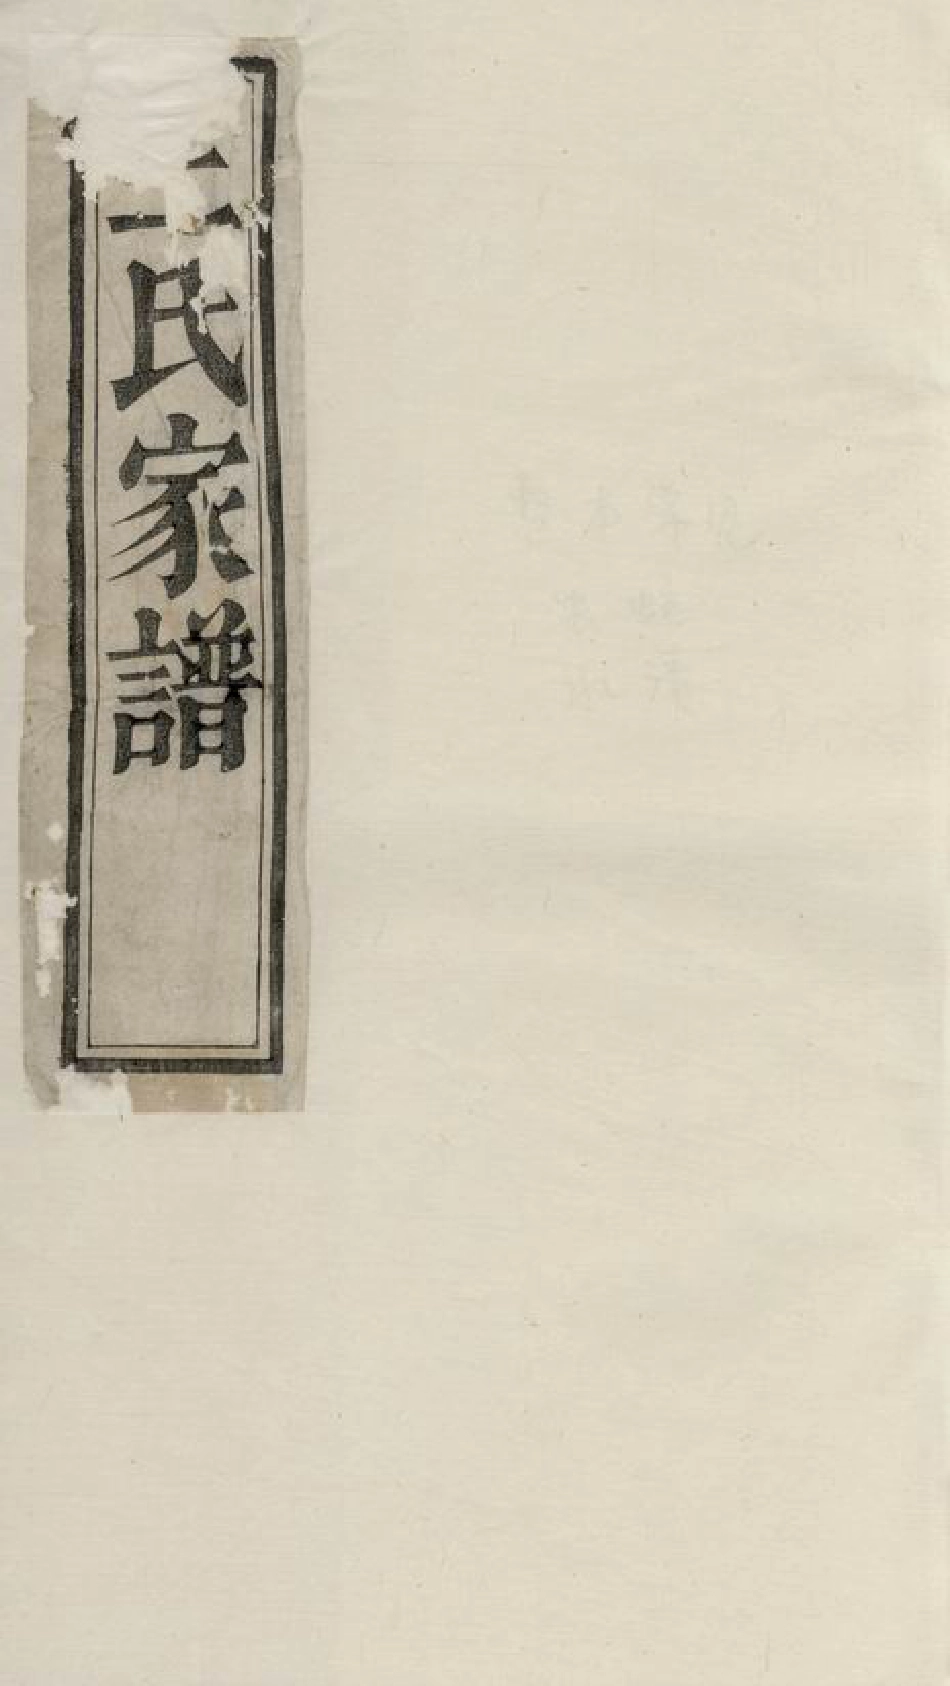 氏家譜